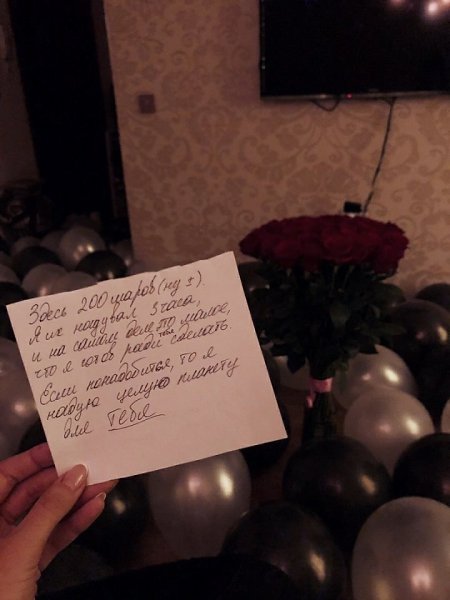 Здесь 200 шаров (ну ±).
Я их надувал 3 часа,
и на самом деле это малое,
что я готов ради тебя сделать.
Если понадобится, то я
надую целую планету
для Тебя